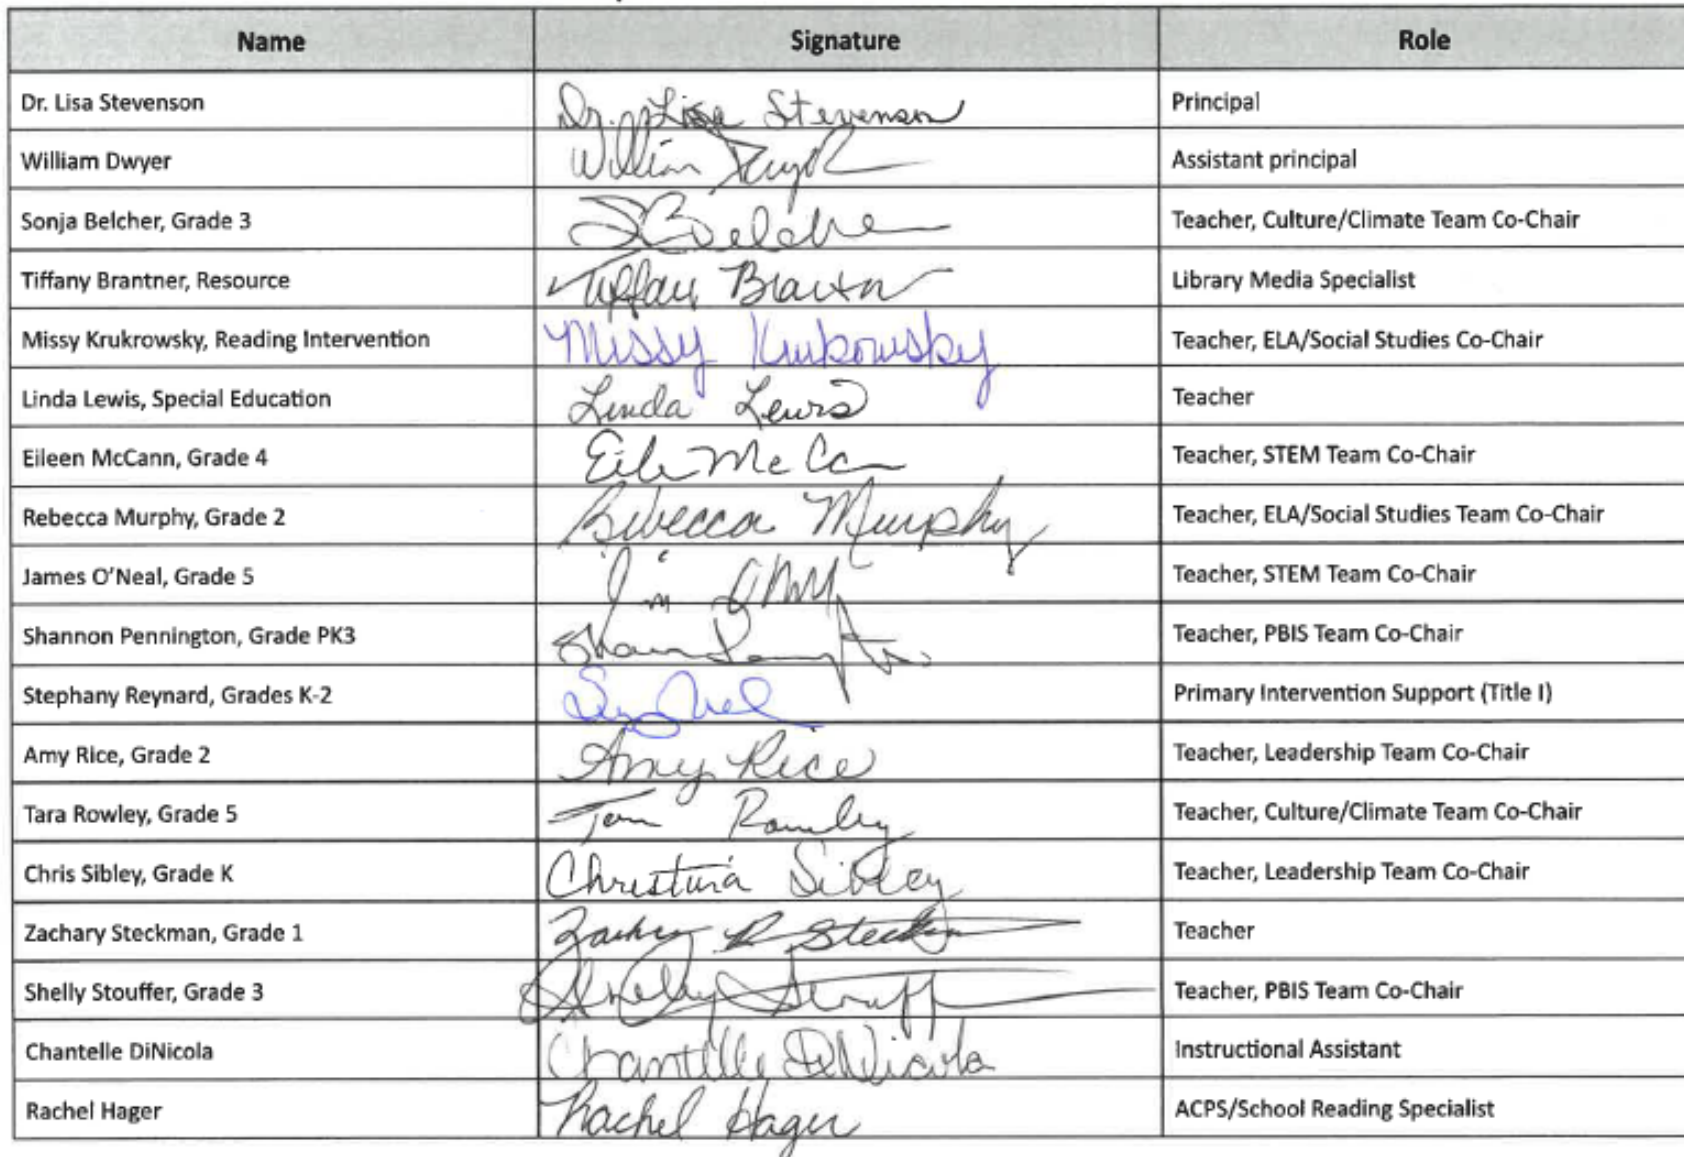 Name Signature Role
Dr. Lisa Stevenson Dr. Lisa Stevenson Principal
William Dwyer William Dwyer Assistant principal
Sonja Belcher, Grade 3 SBelcher Teacher, Culture/Climate Team Co-Chair
Tiffany Brantner, Resource Tiffany Library Media Specialist
Missy Krukrowsky, Reading Intervention Missy Krukowsky Teacher, ELA/Social Studies Co-Chair
Linda Lewis, Special Education Linda Lewis Teacher
Eileen McCann, Grade 4 Teacher, STEM Team Co-Chair
Rebecca Murphy, Grade 2 Rebecca Murphy Teacher, ELA/Social Studies Team Co-Chair
James O'Neal, Grade 5 Jim Teacher, STEM Team Co-Chair
Shannon Pennington, Grade PK3 Teacher, PBIS Team Co-Chair
Stephany Reynard, Grades K-2 Primary Intervention Support (Title I)
Amy Rice, Grade 2 Amy Rice Teacher, Leadership Team Co-Chair
Tara Rowley, Grade 5 Rowley Teacher, Culture/Climate Team Co-Chair
Chris Sibley, Grade K Christina Sibley Teacher, Leadership Team Co-Chair
Zachary Steckman, Grade 1 Teacher
Shelly Stouffer, Grade 3 Shelly Teacher, PBIS Team Co-Chair
Chantelle DiNicola Chantelle DiNicola Instructional Assistant
Rachel Hager Rachel Hager ACPS/School Reading Specialist